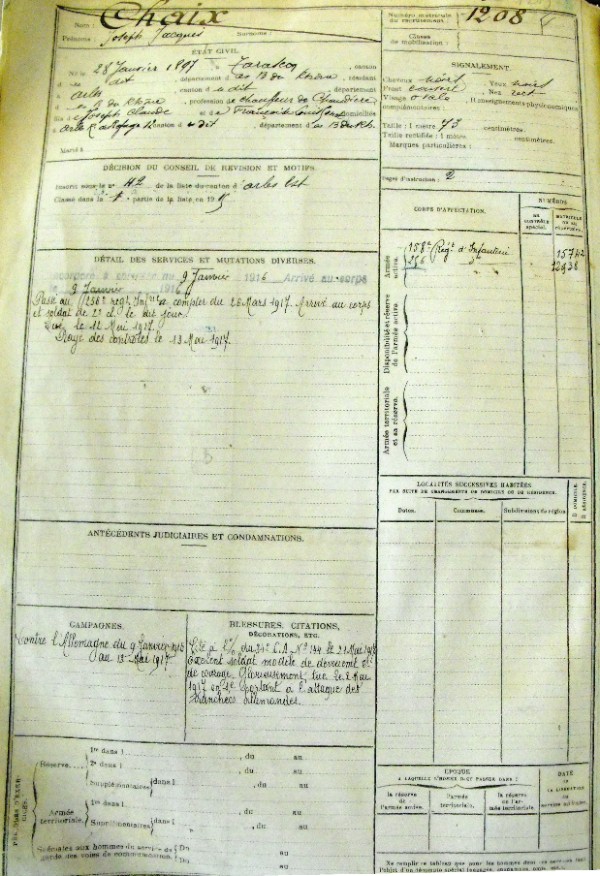 Nom : Chaix
Prénoms : Joseph Jacques Surnoms :
Numéro matricule du recrutement : 1208
Classe de mobilisation :
ÉTAT CIVIL.
Né le 28 Janvier 1897, à Tarascon, canton
d dit, département d es B du Rhône, résidant
à Arles, canton d dit, département
d es B du Rhône, profession de chauffeur de Chaudière
fils de Joseph Claude et de domiciliés
à Arles, canton d dit, département d es B du Rh.
Marié à
SIGNALEMENT.
Cheveux noirs, Yeux noirs
Front, Nez rect
Visage ovale, Renseignements physionomiques
complémentaires :
Taille : 1 mètre 73 centimètres.
Taille rectifiée : 1 mètre centimètres.
Marques particulières :
Degré d'instruction : 2
DÉCISION DU CONSEIL DE RÉVISION ET MOTIFS.
Inscrit sous le n° 42 de la liste du canton d'Arles Est
Classé dans la partie de la liste en 19
DÉTAIL DES SERVICES ET MUTATIONS DIVERSES.
Incorporé à compter du 9 Janvier 1916 Arrivé au corps
le 9 Janvier 1916
Passé au 256e régt Infrie à compter du 26 Mars 1917. Arrivé au corps
et soldat de 2e cl le dit jour
le 12 Mai 1917.
Rayé des contrôles le 13 Mai 1917.
CORPS D'AFFECTATION.
NUMÉROS
AU CONTRÔLE SPÉCIAL.
MATRICULE OU AU RÉPERTOIRE.
Armée active.
158e Régt d'Infanterie
256 do 12938
Disponibilité et réserve de l'armée active.
Armée territoriale et sa réserve.
LOCALITÉS SUCCESSIVES HABITÉES
PAR SUITE DE CHANGEMENTS DE DOMICILE OU DE RÉSIDENCE.
Dates. Communes. Subdivisions de région. D DOMICILE. R RÉSIDENCE.
ANTÉCÉDENTS JUDICIAIRES ET CONDAMNATIONS.
CAMPAGNES.
Contre l'Allemagne du 9 Janvier 1916
au 13 Mai 1917
BLESSURES, CITATIONS,
DÉCORATIONS, ETC.
Cité à l'o/ du 34e C.A. N° 144 le 21 Mai
Excellent soldat modèle de dévouement et
de courage. Glorieusement tué le 2 Mai
1917 en se portant à l'attaque des
tranchées allemandes.
Réserve
1re dans l , du au
2e dans l , du au
Supplémentaires dans l , du au
Armée territoriale.
1re dans l , du au
Supplémentaires dans l , du au
Spéciales aux hommes du service de garde des voies de communication. Du au
Du au
ÉPOQUE
À LAQUELLE L'HOMME DOIT PASSER DANS :
la réserve de l'armée active.
l'armée territoriale.
la réserve de l'armée territoriale.
DATE DE LA LIBÉRATION DU SERVICE MILITAIRE.
Ne remplir ce tableau que pour les hommes dans